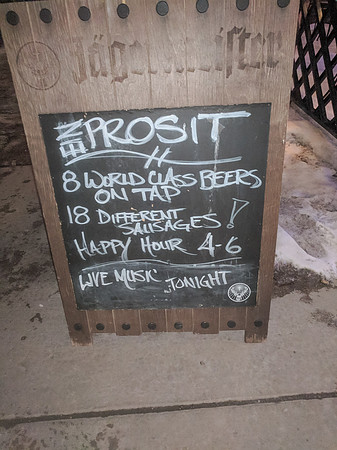 Jägermeister
EIN PROSIT
8 WORLD CLASS BEERS
ON TAP
18 DIFFERENT
SAUSAGES!
HAPPY HOUR 4-6
LIVE MUSIC TONIGHT